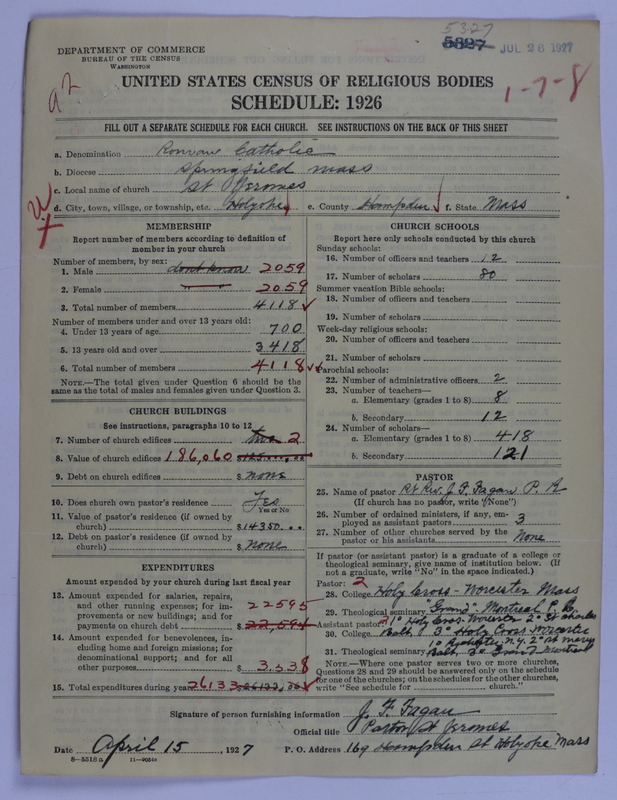 5327
5327 JUL 26 1927
DEPARTMENT OF COMMERCE
BUREAU OF THE CENSUS
WASHINGTON
a2
UNITED STATES CENSUS OF RELIGIOUS BODIES
SCHEDULE: 1926
1-7-8
FILL OUT A SEPARATE SCHEDULE FOR EACH CHURCH. SEE INSTRUCTIONS ON THE BACK OF THIS SHEET
a. Denomination Roman Catholic
b. Diocese Springfield Mass
c. Local name of church St Jeromes
d. City, town, village, or township, etc. Holyoke e. County Hampden f. State Mass
MEMBERSHIP
Report number of members according to definition of
member in your church
Number of members, by sex:
1. Male dont know 2059
2. Female 2059
3. Total number of members 4118
Number of members under and over 13 years old:
4. Under 13 years of age 700
5. 13 years old and over 3418
6. Total number of members 4118
NOTE.—The total given under Question 6 should be the
same as the total of males and females given under Question 3.
CHURCH BUILDINGS
See instructions, paragraphs 10 to 12
7. Number of church edifices two 2
8. Value of church edifices 186,060
9. Debt on church edifices $ none
10. Does church own pastor's residence Yes
Yes or No
11. Value of pastor's residence (if owned by
church) $ 14350
12. Debt on pastor's residence (if owned by
church) $ None
EXPENDITURES
Amount expended by your church during last fiscal year
13. Amount expended for salaries, repairs,
and other running expenses; for im-
provements or new buildings; and for
payments on church debt 22595 $ 22,594
14. Amount expended for benevolences, in-
cluding home and foreign missions; for
denominational support; and for all
other purposes 3,538
15. Total expenditures during year 26133
CHURCH SCHOOLS
Report here only schools conducted by this church
Sunday schools:
16. Number of officers and teachers 12
17. Number of scholars 80
Summer vacation Bible schools:
18. Number of officers and teachers
19. Number of scholars
Week-day religious schools:
20. Number of officers and teachers
21. Number of scholars
Parochial schools:
22. Number of administrative officers 2
23. Number of teachers—
a. Elementary (grades 1 to 8) 8
b. Secondary 12
24. Number of scholars—
a. Elementary (grades 1 to 8) 418
b. Secondary 121
PASTOR
25. Name of pastor Rt Rev. J. F. Fagan P. R
(If church has no pastor, write "None")
26. Number of ordained ministers, if any, em-
ployed as assistant pastors 3
27. Number of other churches served by the
pastor or his assistants None
If pastor (or assistant pastor) is a graduate of a college or
theological seminary, give name of institution below. (If
not a graduate, write "No" in the space indicated.)
Pastor: 2
28. College Holy Cross - Worcester Mass
29. Theological seminary "Grand" - Montreal P. Q.
Assistant pastor: 2 1° Holy Cross Worcester 2° St Charles
30. College Balt. 3° Holy Cross Worcester
1° Rochester N.Y. 2° St Mary
31. Theological seminary Balt. 3° Grand - Montreal
NOTE.—Where one pastor serves two or more churches,
Questions 28 and 29 should be answered only on the schedule
for one of the churches; on the schedules for the other churches,
write "See schedule for church."
Signature of person furnishing information J. F. Fagan
Official title Pastor St Jeromes
Date April 15, 1927 P. O. Address 169 Hampden St Holyoke Mass
8—5518a 11—9054a